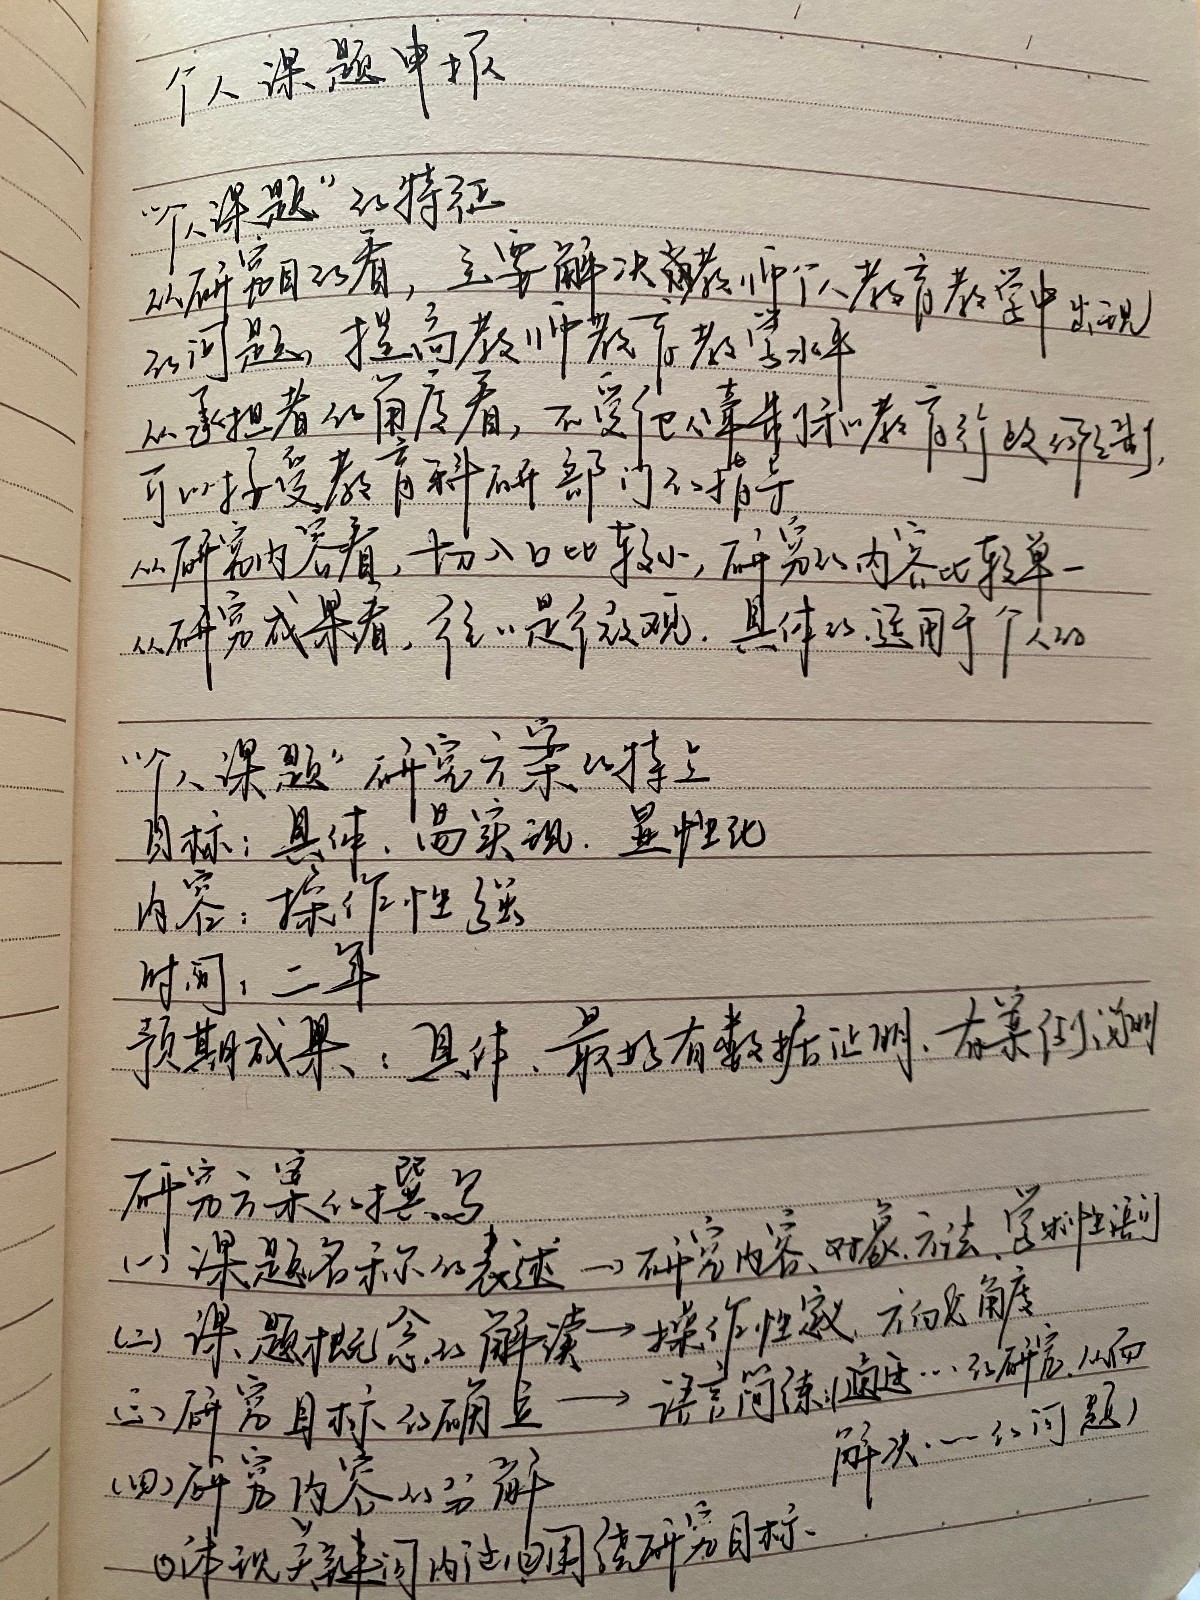 个人课题申报
“个人课题”的特征
从研究目的看，主要解决教师个人教育教学中出现
的问题，提高教师教育教学水平
从承担者的角度看，不受他人牵制和教育行政的限制，
可以接受教育科研部门的指导
从研究内容看，切入口比较小，研究的内容比较单一
从研究成果看，是微观、具体的、适用于个人的
“个人课题”研究方案的特点
目标：具体、易实现、显性化
内容：操作性强
时间：二年
预期成果：具体、最好有数据证明、有案例说明
研究方案的撰写
(一) 课题名称的表述 → 研究内容、对象、方法、学术性语词
(二) 课题概念的解读 → 操作性定义、方向及角度
(三) 研究目标的确立 → 语言简练（通过…的研究，从而
解决……的问题）
(四) 研究内容的分解
①体现关键词内涵②围绕研究目标.